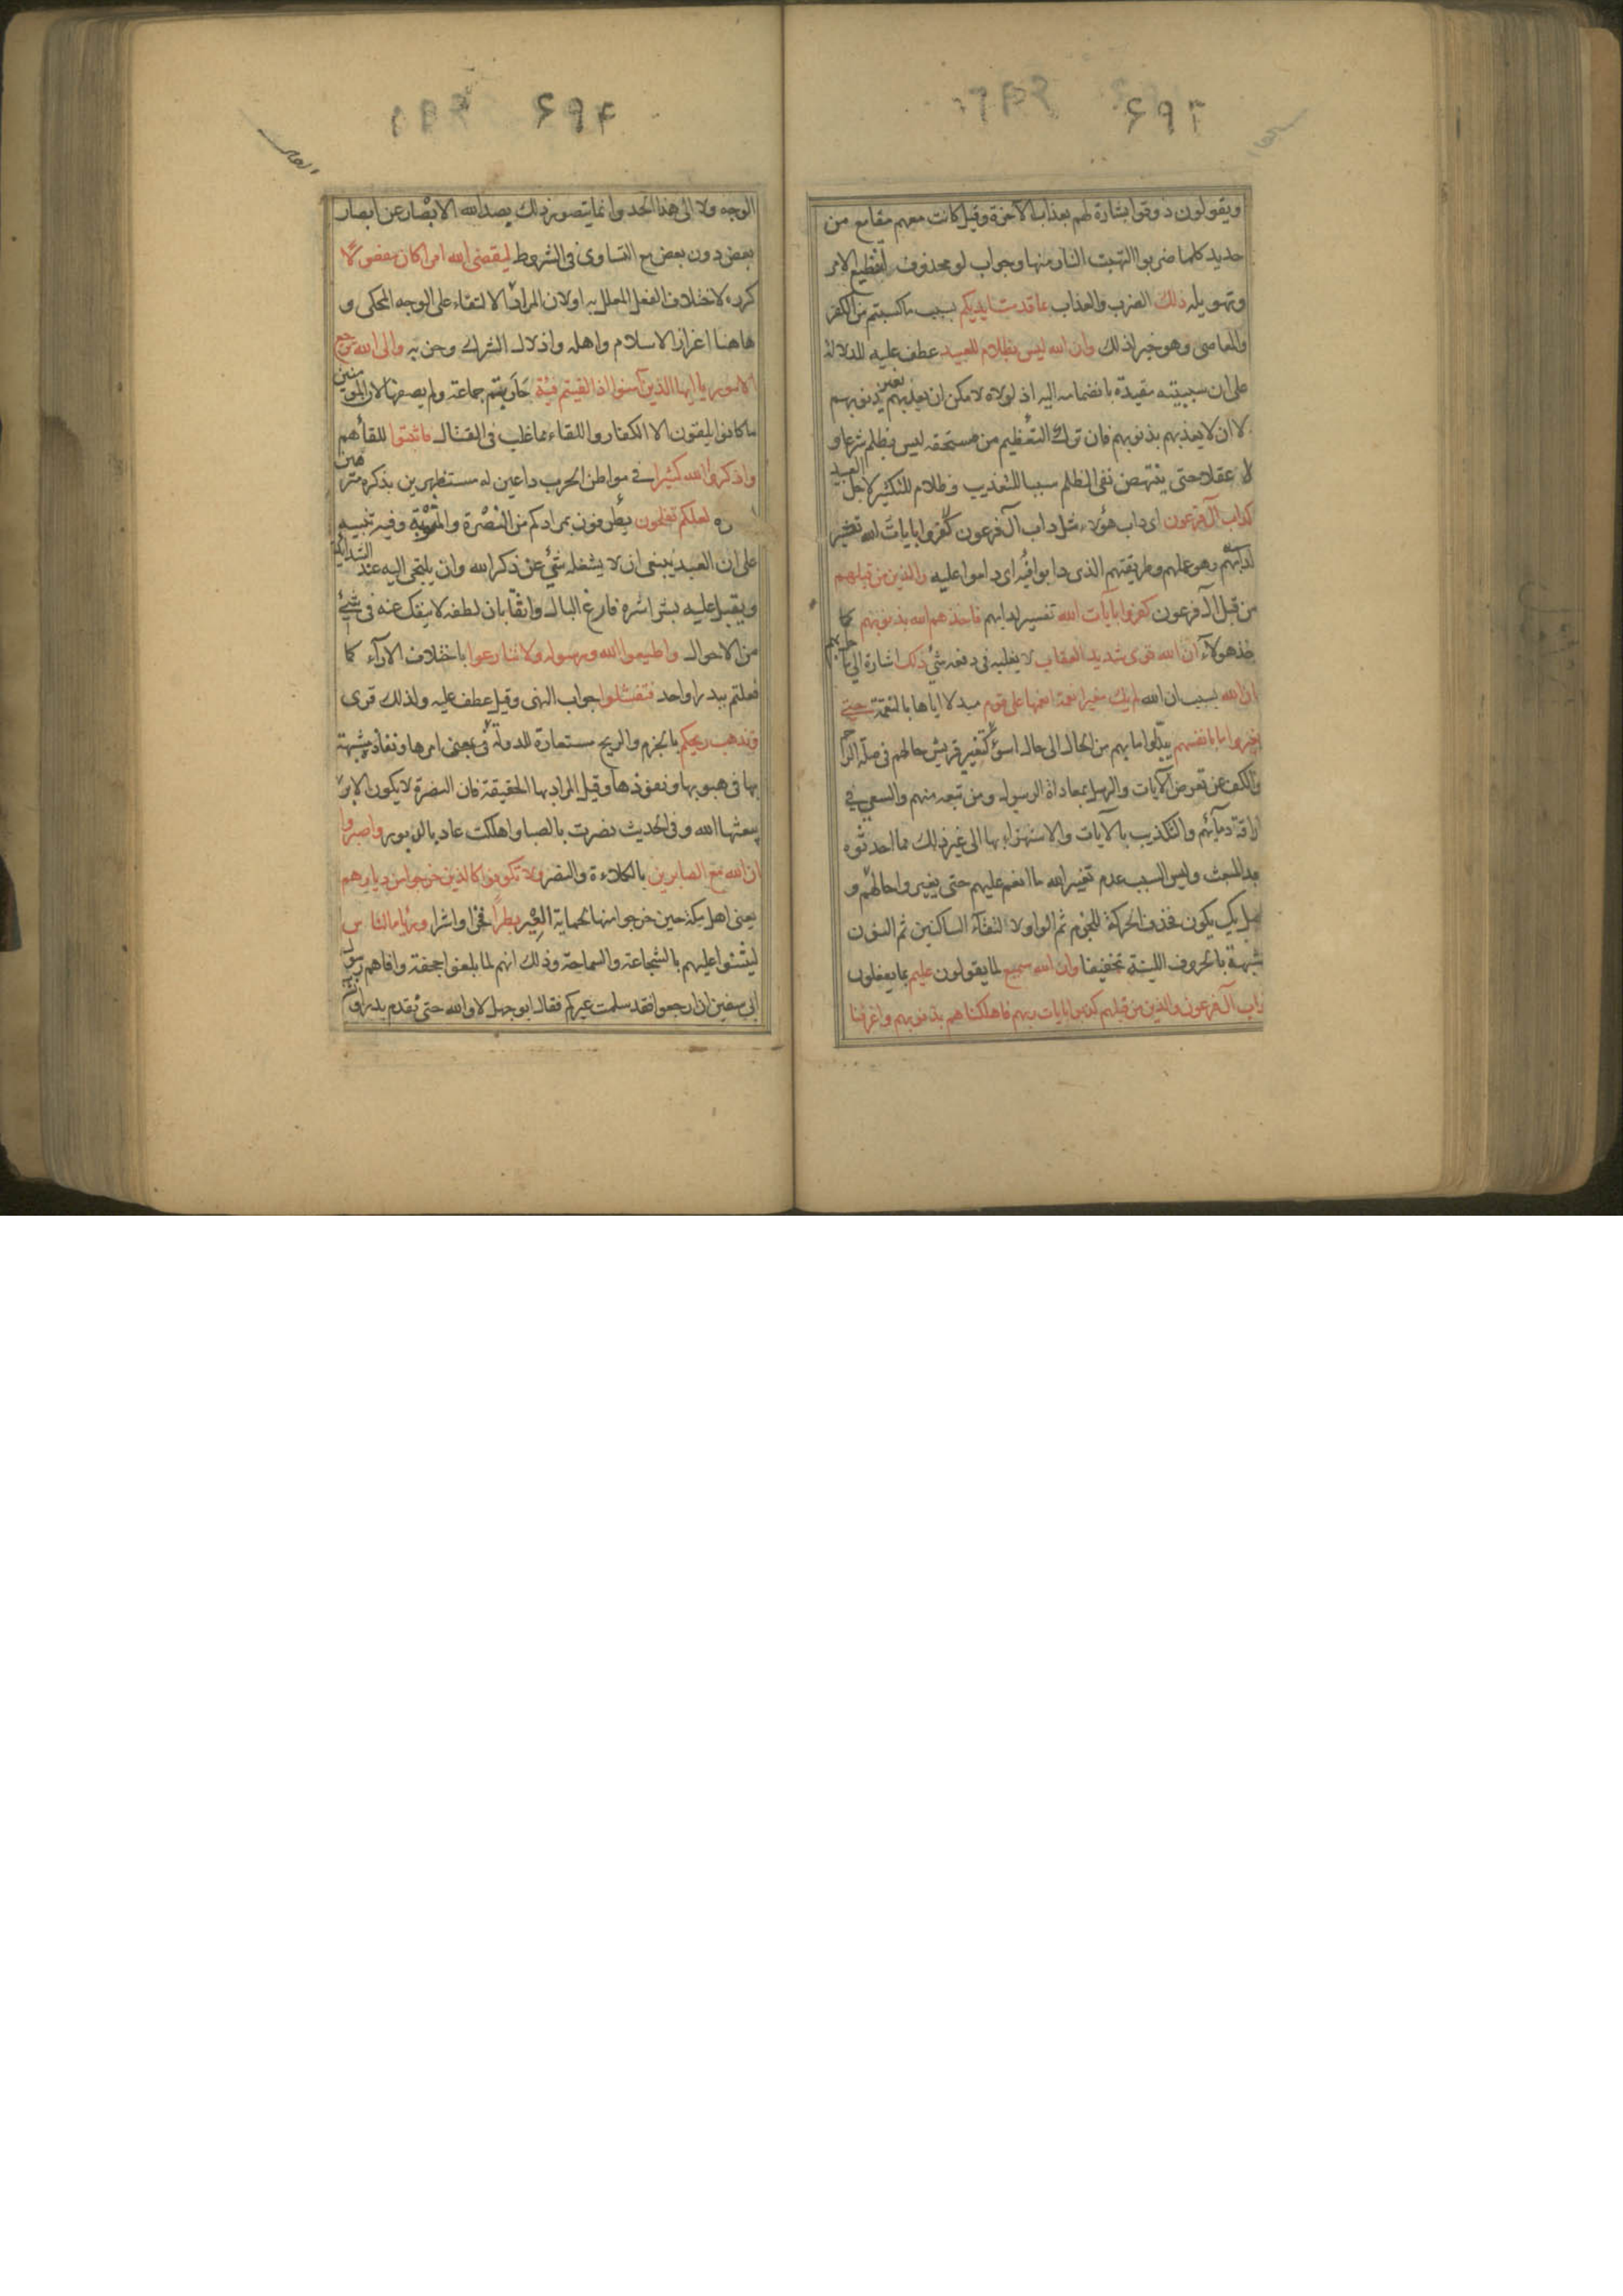 ۶۹۳
ويقولون ذوقوا بشارة لهم بعذاب الآخرة وقيل كانت معهم مقامع من
حديد كلما ضربوا التهبت النار منها وجواب لو محذوف لتفظيع الامر
وتهويله ذلك الضرب والعذاب بما قدمت ايديكم بسبب ما كسبتم من الكفر
والمعاصى وهو خبر لذلك وان الله ليس بظلام للعبيد عطف عليه للدلالة
على ان سببيته مقيدة بانضمامه اليه اذ لولاه لامكن ان يعذبهم بغير ذنوبهم
لا ان لا يعذبهم بذنوبهم فان ترك التعظيم من مستحقه ليس بظلم شرعا و
لا عقلا حتى ينتهض نفى الظلم سببا للتعذيب وظلام للتكثير لاجل العبيد
كداب آل فرعون اى داب هؤلاء مثل داب آل فرعون كفروا بايات الله تفسير
لدابهم وهو عملهم وطريقتهم الذى دابوا فيه اى داموا عليه والذين من قبلهم
من قبل آل فرعون كفروا بآيات الله تفسير لدابهم فاخذهم الله بذنوبهم كما
اخذ هولاء ان الله قوى شديد العقاب لا يغلبه فى دفعه شئ ذلك اشارة الى ما حل بهم
بان الله بسبب ان الله لم يك مغيرا نعمة انعمها على قوم مبدلا اياها بالنقمة حتى
يغيروا ما بانفسهم يبدلوا ما بهم من الحال الى حال اسوء كتغيير قريش حالهم فى صلة الرحم
والكف عن تعرض الآيات والرسل بمعاداة الرسول ومن تبعه منهم والسعى فى
اراقة دمائهم والتكذيب بالآيات والاستهزاء بها الى غير ذلك مما احدثوه
بعد المبعث وليس السبب عدم تغيير الله ما انعم عليهم حتى يغيروا حالهم و
اصل يك يكون فحذف الحركة للجزم ثم الواو لالتقاء الساكنين ثم النون
لشبهه بالحروف اللينة تخفيفا وان الله سميع لما يقولون عليم بما يفعلون
كداب آل فرعون والذين من قبلهم كذبوا بايات ربهم فاهلكناهم بذنوبهم واغرقنا
۶۹۴
الوجه ولا الى هذا الحد وانما يتصور ذلك بصد الله الابصار عن ابصار
بعض دون بعض مع التساوى فى الشروط ليقضى الله امرا كان مفعولا
كرره لاختلاف الفعل المعلل به او لان المراد بالالتقاء على الوجه المحكى و
هاهنا اعزاز الاسلام واهله واذلال الشرك وحزبه والى الله ترجع
الامور يا ايها الذين آمنوا اذا لقيتم فئة حاربتم جماعة ولم يصفها لان المؤمنين
ما كانوا يلقون الا الكفار واللقاء مما غلب فى القتال فاثبتوا للقائهم
واذكروا الله كثيرا فى مواطن الحرب داعين له مستظهرين بذكره مترقبين
لعلكم تفلحون تظفرون بمرادكم من النصرة والمثوبة وفيه تنبيه
على ان العبد ينبغى ان لا يشغله شئ عن ذكر الله وان يلتجى اليه عند الشدائد
ويقبل عليه بشراشره فارغ البال واثقا بان لطفه لا ينفك عنه فى شئ
من الاحوال واطيعوا الله ورسوله ولا تنازعوا باختلاف الآراء كما
فعلتم ببدر او احد فتفشلوا جواب النهى وقيل عطف عليه ولذلك قرى
وتذهب ريحكم بالجزم والريح مستعارة للدولة فى تمشى امرها ونفاذه مشبهة
بها فى هبوبها ونفوذها وقيل المراد بها الحقيقة فان النصرة لا يكون الا بريح
يبعثها الله وفى الحديث نصرت بالصبا واهلكت عاد بالدبور واصبروا
ان الله مع الصابرين بالكلاءة والنصر ولا تكونوا كالذين خرجوا من ديارهم
يعنى اهل مكة حين خرجوا منها لحماية العير بطرا فخرا واشرا ورئاء الناس
ليثنوا عليهم بالشجاعة والسماحة وذلك انهم لما بلغوا جحفة وافاهم رسول
ابى سفين ان ارجعوا فقد سلمت عيركم فقال ابو جهل لا والله حتى نقدم بدرا